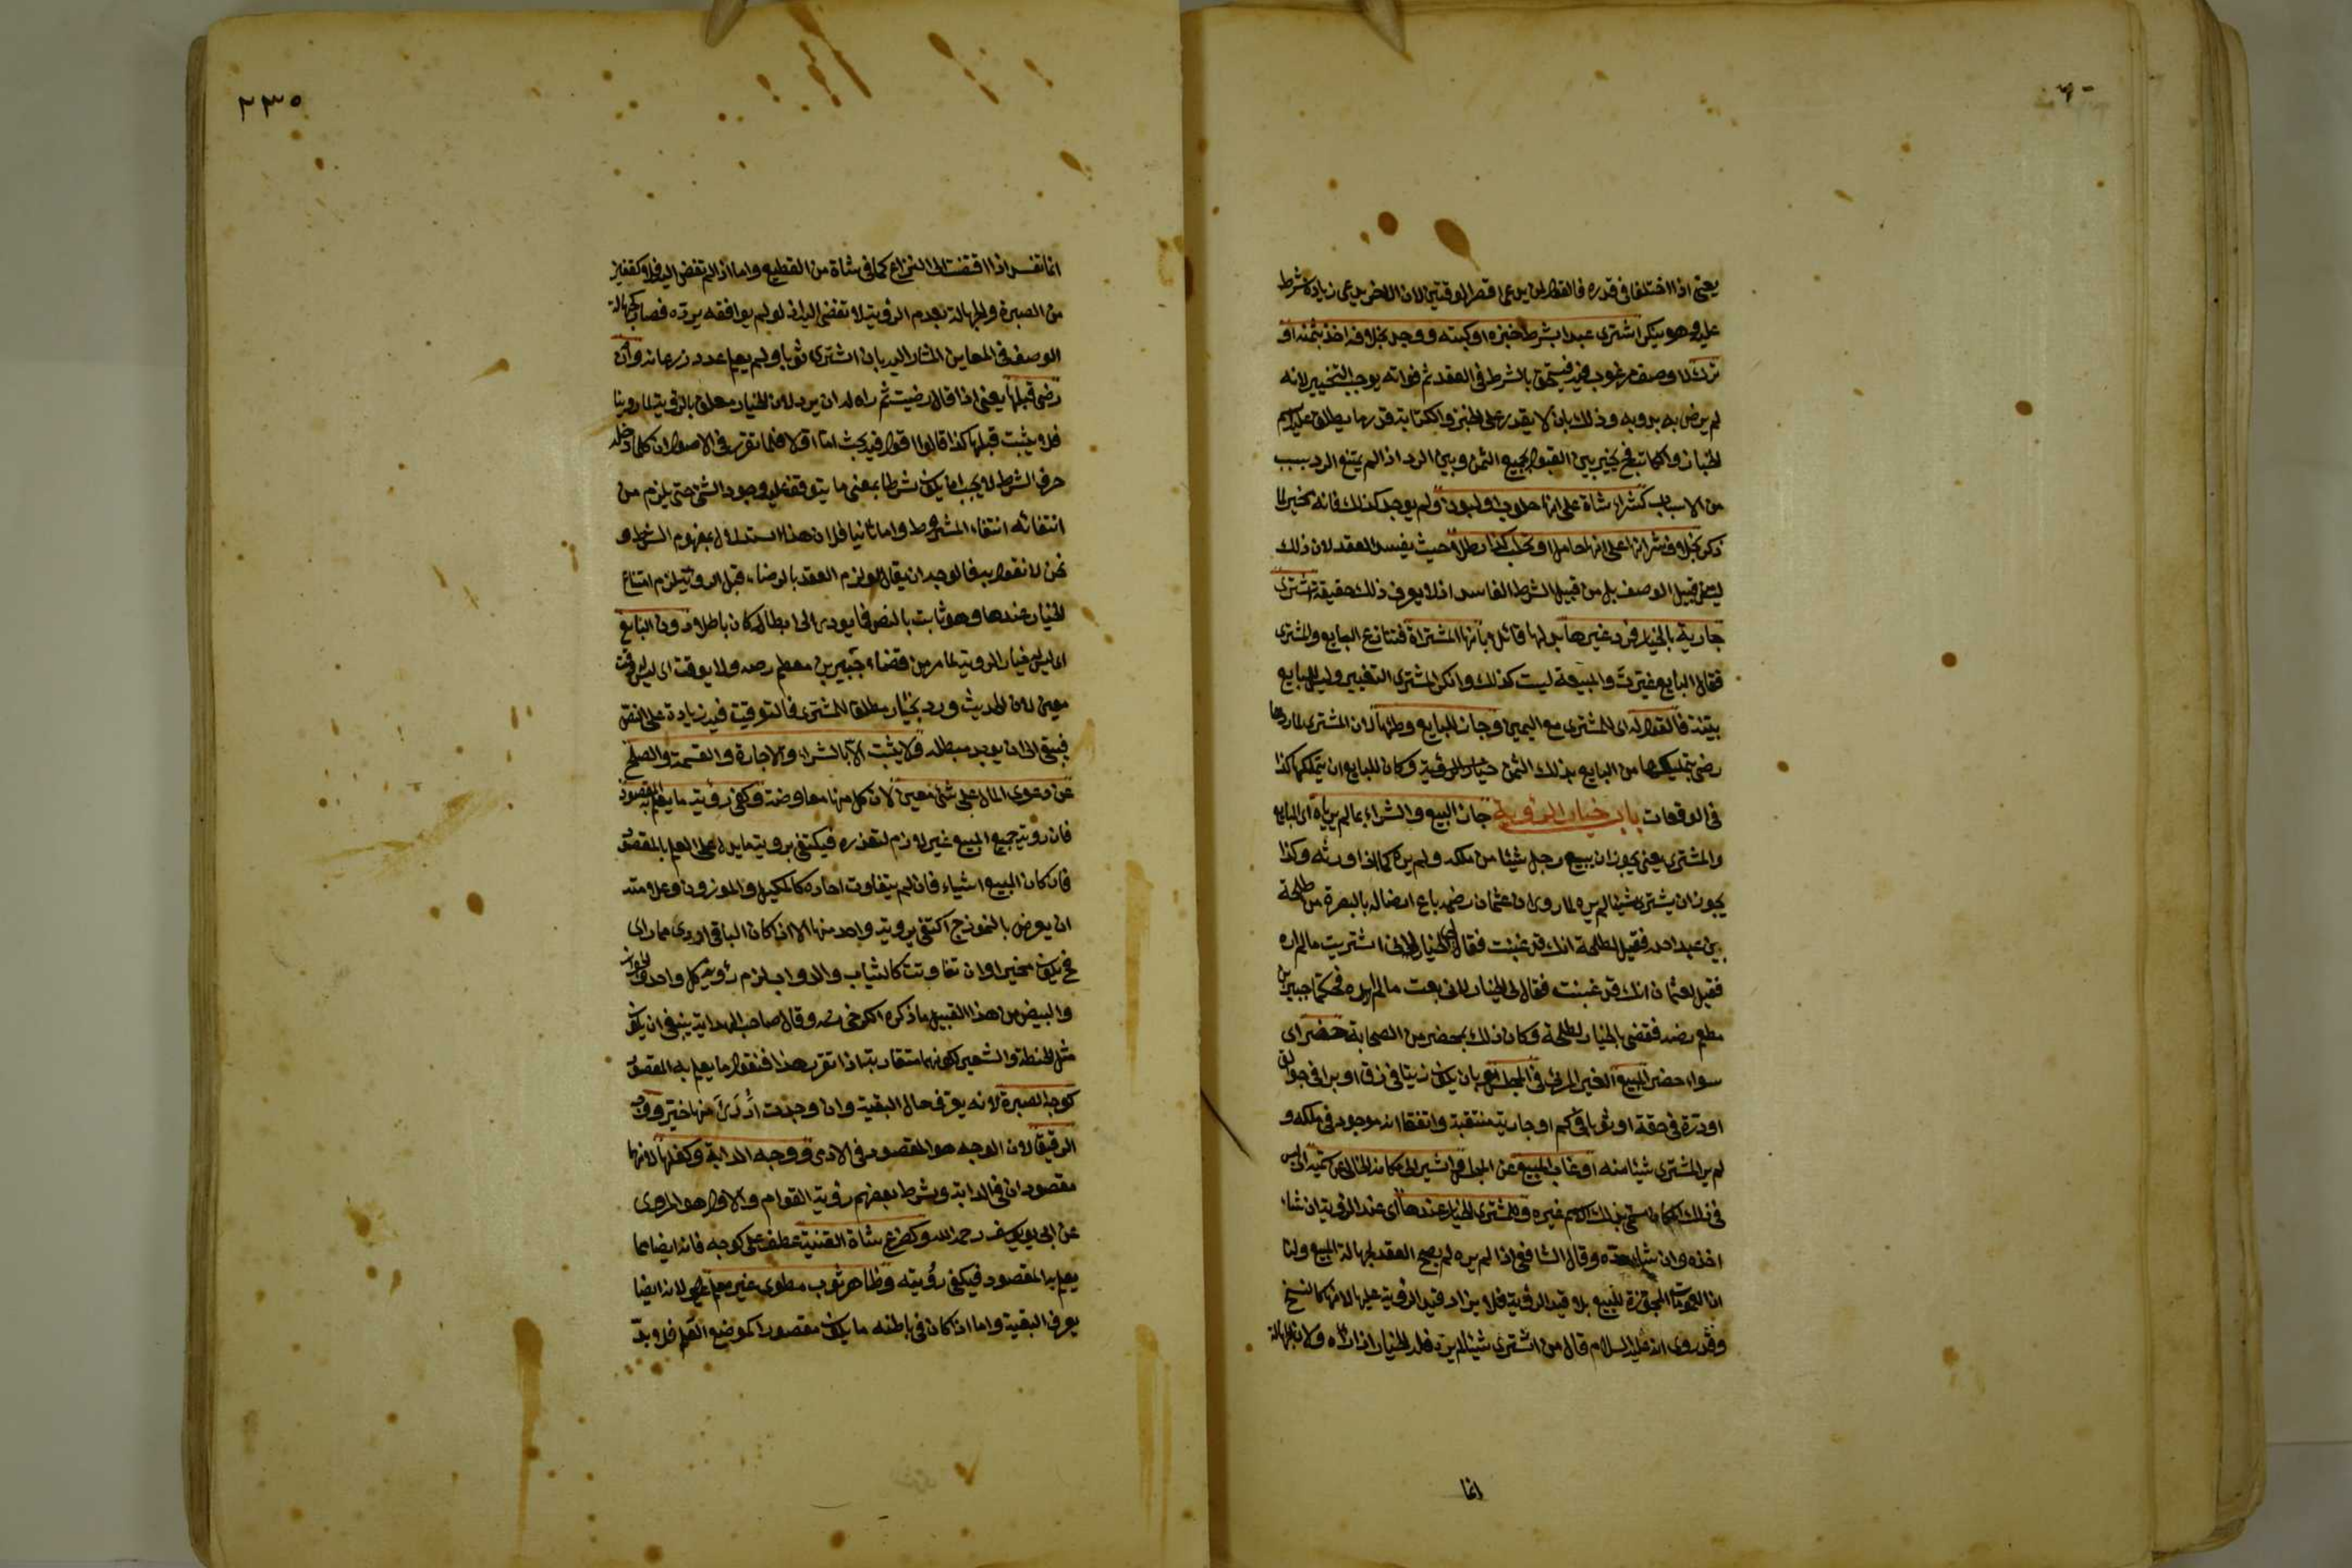 يعني اذا اختلفا في قدره فالقول لمن يدعي اقصر الوقتين لان الاخر يدعي زيادة شرط
عليه وهو ينكر اشترى عبدا بشرط خبزه او كتبه ووجد بخلافه اخذ بثمنه او
ترك لان وصف مرغوب فيه فيستحق بالشرط في العقد ثم فواته يوجب التخيير لانه
لم يرض به بدونه وذلك بان لا يقدر على الخبز والكتابة قدر ما يطلق عليه اسم
الخباز والكاتب فح يخير بين القبول بجميع الثمن وبين الرد اذا لم يمتنع الرد بسبب
من الاسباب كشراء شاة على انها حلوب او لبون ولم يوجد كذلك فانه يخير لما
ذكر بخلاف شرائها على انها حامل او تحلب كذا رطلا حيث يفسد العقد لان ذلك
ليس من قبيل الوصف بل من قبيل الشرط الفاسد اذ لا يعرف ذلك حقيقة اشترى
جارية بالخيار فرد غيرها بدلها قائلا بانها المشتراة فتنازع البايع والمشتري
فقال البايع غيرت والمبيعة ليست كذلك وانكر المشتري التغيير وليس للبايع
بينة فالقول له اى للمشتري مع اليمين وجاز للبايع وطئها لان المشتري لما ردها
رضي بتمليكها من البايع بذلك الثمن وكان للبايع ان يتملكها كذا
في الواقعات باب خيار الرؤية جاز البيع والشراء بما لم يرياه اى البايع
والمشتري يعني يجوز ان يبيع رجل شيئا من ملكه ولم يره كما اذا ورثه وكذا
يجوز ان يشتري شيئا لم يره لما روى ان عثمان رضه باع ارضا له بالبصرة من طلحة
بن عبد الله فقيل لطلحة انك قد غبنت فقال لى الخيار لانى اشتريت ما لم اره
فقيل لعثمان انك قد غبنت فقال لى الخيار لانى بعت ما لم اره فحكما جبير بن
مطعم رضه فقضى بالخيار لطلحة وكان ذلك بمحضر من الصحابة حضر اى
سواء حضر المبيع الغير المرئي في المجلس بان يكون زيتا في زق او برا في جوالق
او درة في حقة او ثوبا في كم او جارية منتقبة واتفقا انه موجود في ملكه و
لم ير المشتري شيئا منه او غاب المبيع عن المجلس واشير الى مكانه الخالى عن سميه اى ليس
في ذلك المكان مسمى بذلك الاسم غيره وللمشتري الخيار عندها اى عند الرؤية ان شاء
اخذه وان شاء رده وقال الشافعي اذا لم يره لم يصح العقد لجهالة المبيع ولنا
ان العمومات المجوزة للبيع بلا قيد الرؤية فلا يزاد قيد الرؤية عليها لانها كالنسخ
وقد روى انه عليه السلام قال من اشترى شيئا لم يره فله الخيار اذا رآه ولان الجهالة
انما
٢٣٥
انما تفسد اذا افضت الى النزاع كما في شاة من القطيع واما اذا لم تفض اليه فلا وكقفيز
من الصبرة والجهالة بعدم الرؤية لا تفضي اليه اذ لو لم يوافقه يرده فصار كجهالة
الوصف في المعاين المشار اليه بان اشترى ثوبا ولم يعلم عدد ذرعانه وان
رضي قبلها يعني اذا قال رضيت ثم رآه له ان يرد لان الخيار معلق بالرؤية لما روينا
فلا يثبت قبلها كذا قالوا اقول فيه بحث اما اولا فلما تقرر في الاصول ان كلما دخله
حرف الشرط لا يجب ان يكون شرطا بمعنى ما يتوقف عليه وجود الشئ حتى يلزم من
انتفائه انتفاء المشروط واما ثانيا فلان هذا استدلال بمفهوم الشرط و
نحن لا نقول به فالوجه ان يقال لو لزم العقد بالرضاء قبل الرؤية يلزم امتناع
الخيار عندها وهو ثابت بالنص فما يودى الى ابطاله كان باطلا دون البايع
اى ليس له خيار الرؤية لما مر من قضاء جبير بن مطعم رضه ولا يوقت اى ليس له وقت
معين لان الحديث ورد بخيار مطلق للمشتري فالتوقيت فيه زيادة على النص
فيبقى الى ان يوجد مبطله ولا يثبت الا بالشراء والاجارة والقسمة والصلح
عن دعوى المال على شئ معين لان كل منها معاوضة وكفى رؤية ما يعلم به المقصود
فان رؤية جميع المبيع غير لازم لتعذره فيكتفى برؤية ما يدل على العلم بالمقصود
فان كان المبيع اشياء فان لم يتفاوت احاده كالمكيل والموزون وعلامته
ان يعرض بالنموذج اكتفى برؤية واحد منها الا اذا كان الباقي اردى مما راى
فح يكون مخيرا وان تفاوتت كالثياب والدواب لزم رؤية كل واحد والجوز
والبيض من هذا القبيل ما ذكره الكرخي رحه وقال صاحب الهداية ينبغي ان يكون
مثل الحنطة والشعير لكونهما متقاربة اذا تقرر هذا فنقول ما يعلم به المقصود
كوجه الصبرة لانه يعرف حال البقية وان وجدت اَرْدَىَ منها خير ووجه
الرقيق لان الوجه هو المقصود في الادمي ووجه الدابة وكفلها لانهما
مقصودان في الدابة وشرط بعضهم رؤية القوائم والاول هو المروى
عن ابى يوسف رحمه الله وكضرع شاة القنية عطف على كوجه فانه ايضا مما
يعلم به المقصود فيكفي رؤيته وظاهر ثوب مطوى غير معلم لانه ايضا
يعرف البقية واما اذا كان في باطنه ما يكون مقصودا كموضع العلم فلا بد